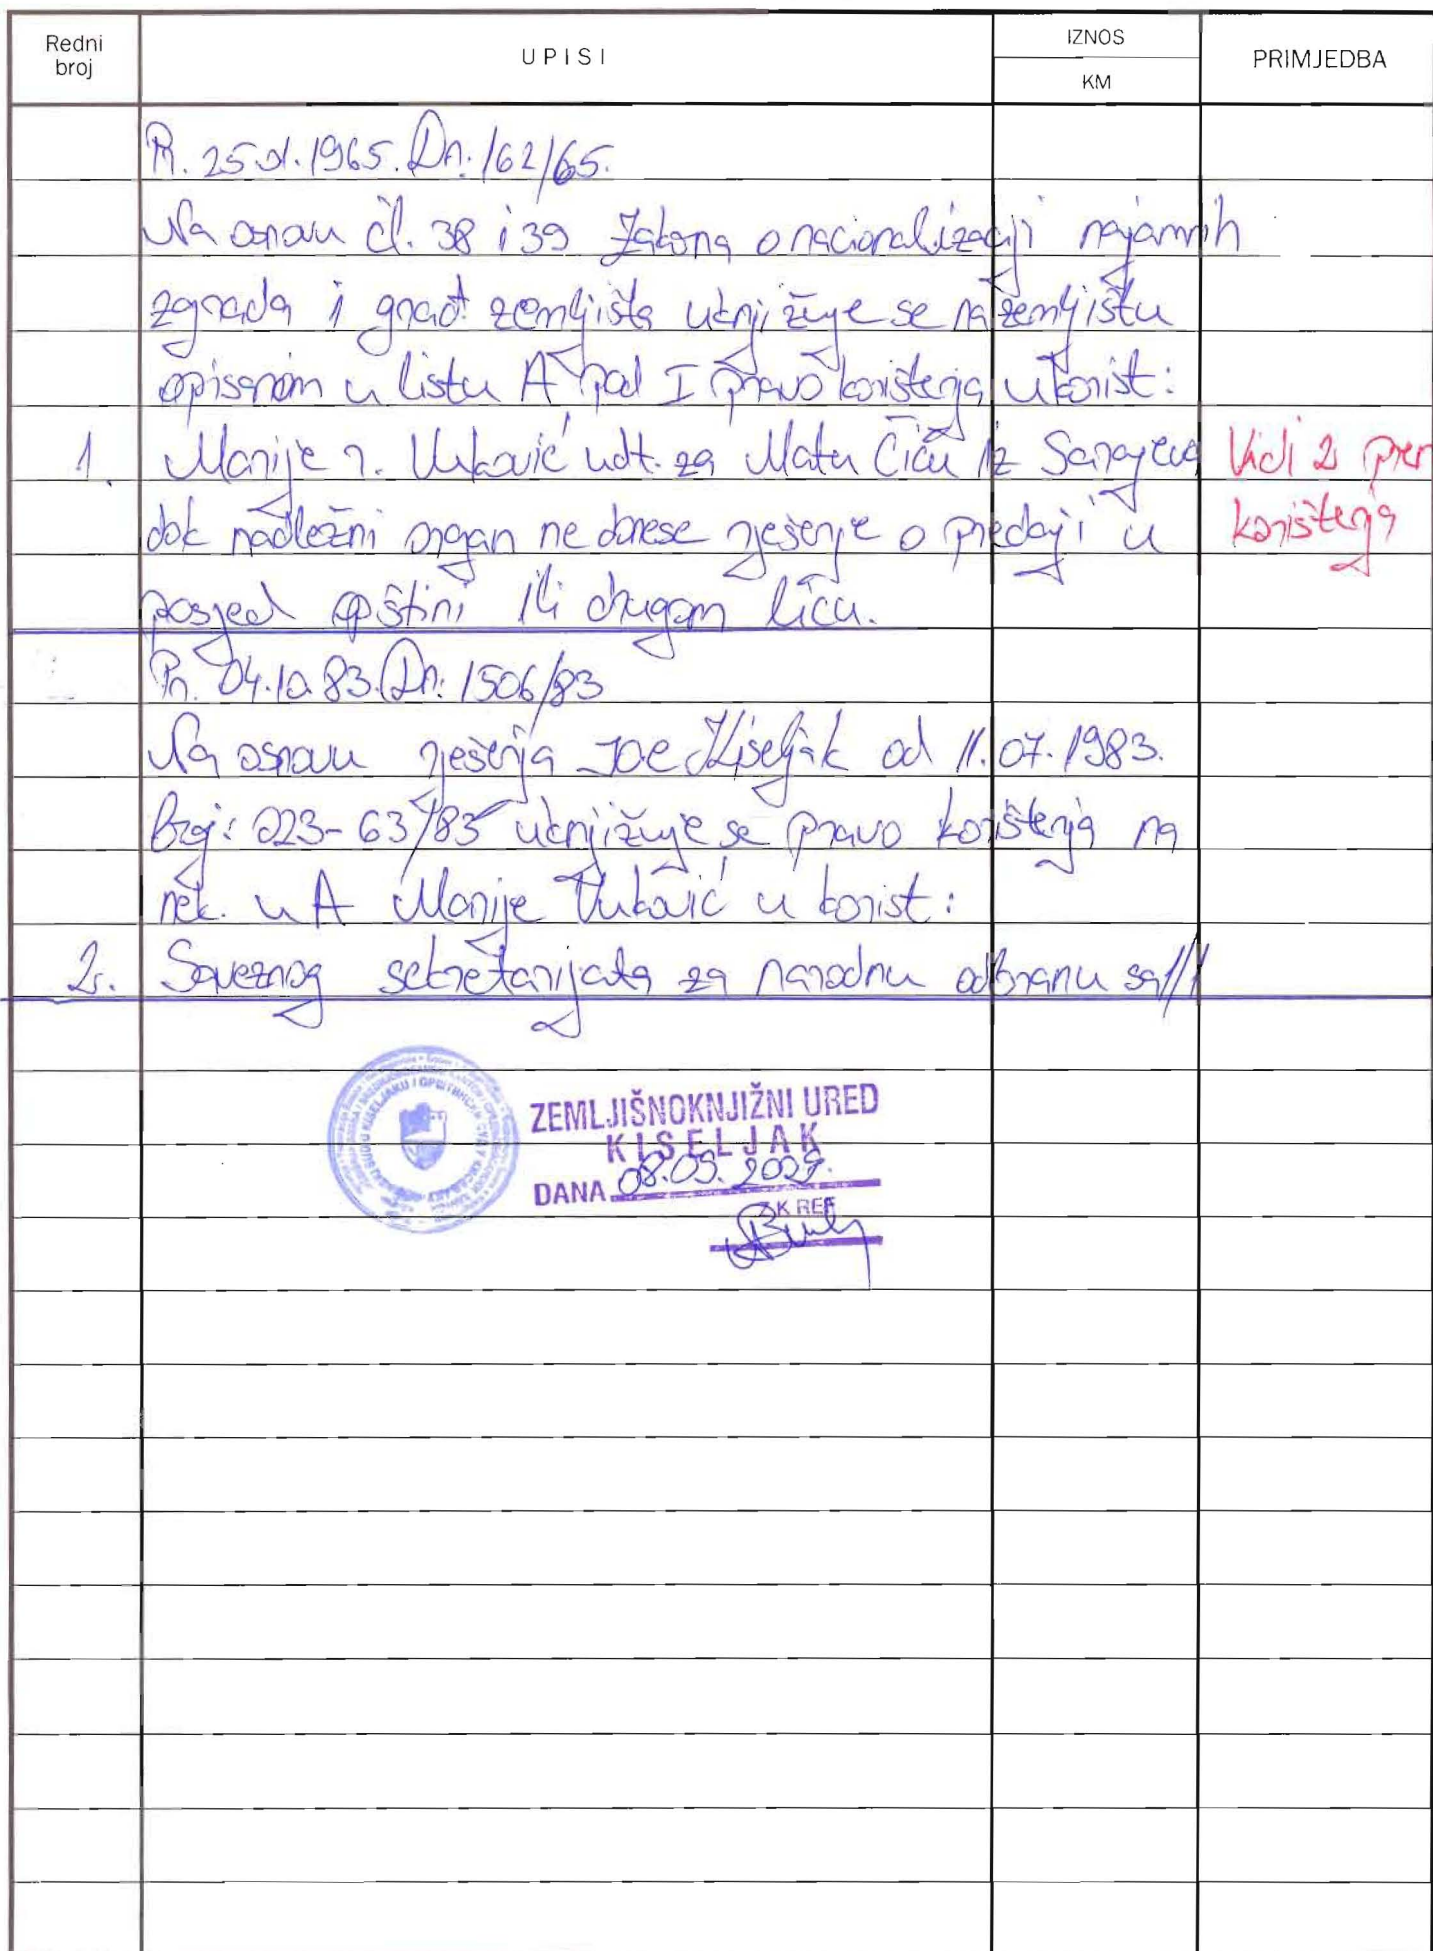 Redni broj
UPISI
IZNOS
KM
PRIMJEDBA
Pr. 25.01.1965. Dn: 162/65.
Na osnovu čl. 38 i 39 Zakona o nacionalizaciji najamnih
zgrada i građ. zemljišta uknjižuje se na zemljištu
opisanom u listu A pod I pravo korištenja u korist:
1. Marije r. Vuković udt. za Matu Čiču iz Sarajeva Vidi 2 pren
dok nadležni organ ne donese rješenje o predaji u korištenja
posjed opštini ili drugom licu.
Pn. 04.10.83. Dn: 1506/83
Na osnovu rješenja Kiseljak od 11.07.1983.
broj: 023-63/83 uknjižuje se pravo korištenja na
nek. u A Marije Vuković u korist:
2. Saveznog sekretarijata za narodnu odbranu sa 1/1
ZEMLJIŠNOKNJIŽNI URED
KISELJAK
DANA 08.05.2029.
ZK REF